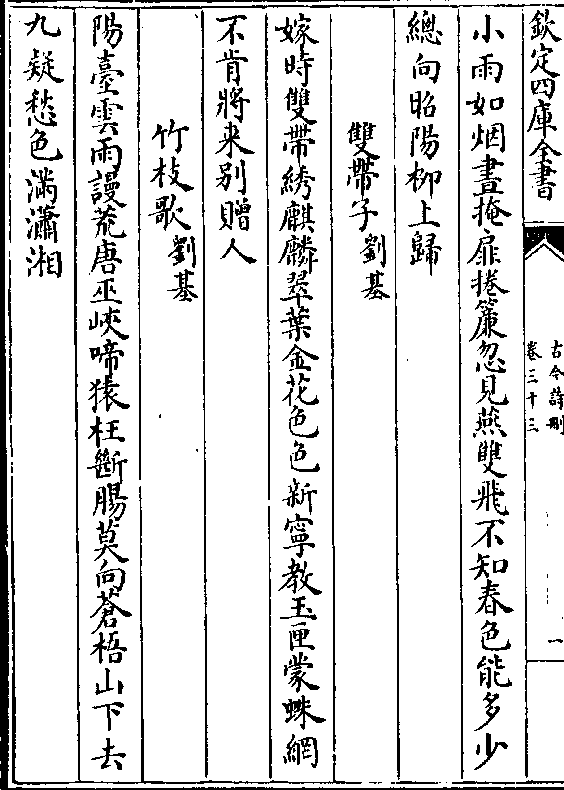 欽定四庫全書
古今詩刪
卷三十三
一
小雨如烟晝掩扉捲簾忽見燕雙飛不知春色能多少
總向昭陽柳上歸
雙帶子劉基
嫁時雙帶綉麒麟翠葉金花色色新寧教玉匣蒙蛛網
不肯將来别贈人
竹枝歌劉基
陽臺雲雨謾荒唐巫峽啼猿枉斷腸莫向蒼梧山下去
九疑愁色滿瀟湘